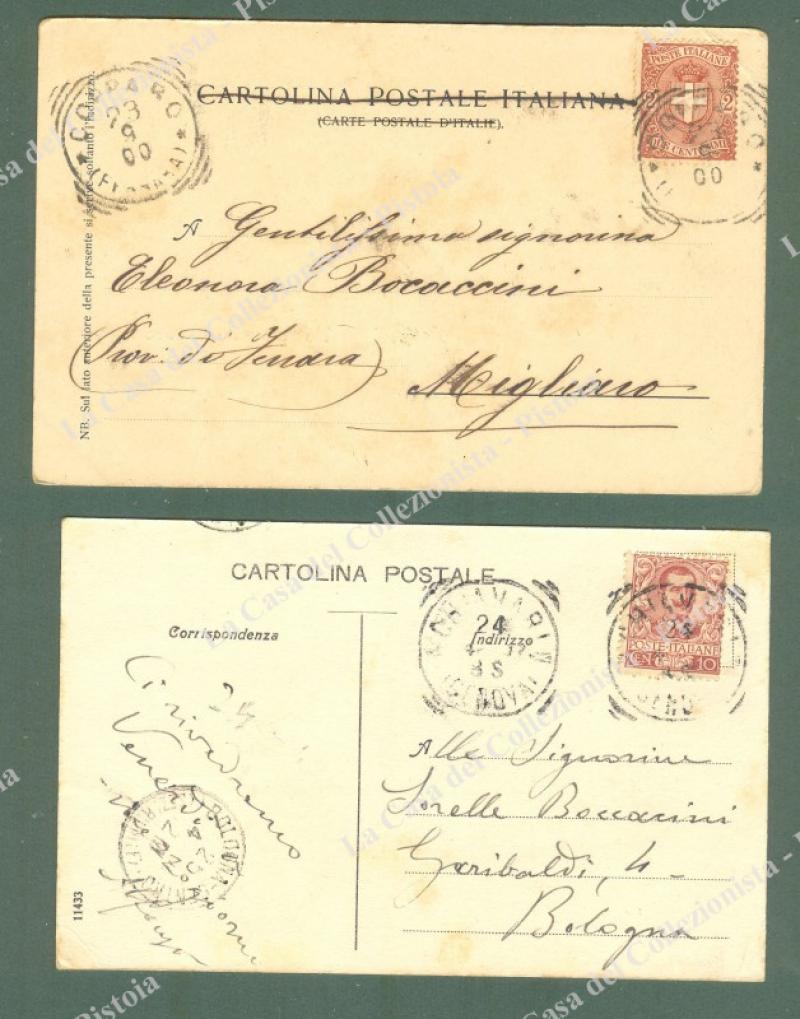 CARTOLINA POSTALE ITALIANA
(CARTE POSTALE D'ITALIE).
POSTE ITALIANE
2 2
DUE CENTESIMI
COPPARO
23
9
00
(FERRARA)
00
NB. Sul lato anteriore della presente si scrive soltanto l'indirizzo.
A Gentilissima signorina
Eleonora Bocaccini
(Prov. di Ferrara)
Migliaro
CARTOLINA POSTALE
Corrispondenza
Indirizzo
CHIAVARI
24
8 S
(GENOVA)
24
POSTE ITALIANE
CENT. 10
Ci rivedremo
Venerdì
BOLOGNA
Alle Signorine
Sorelle Boccacini
Garibaldi, 4
Bologna
11433
La Casa del Collezionista - Pistoia